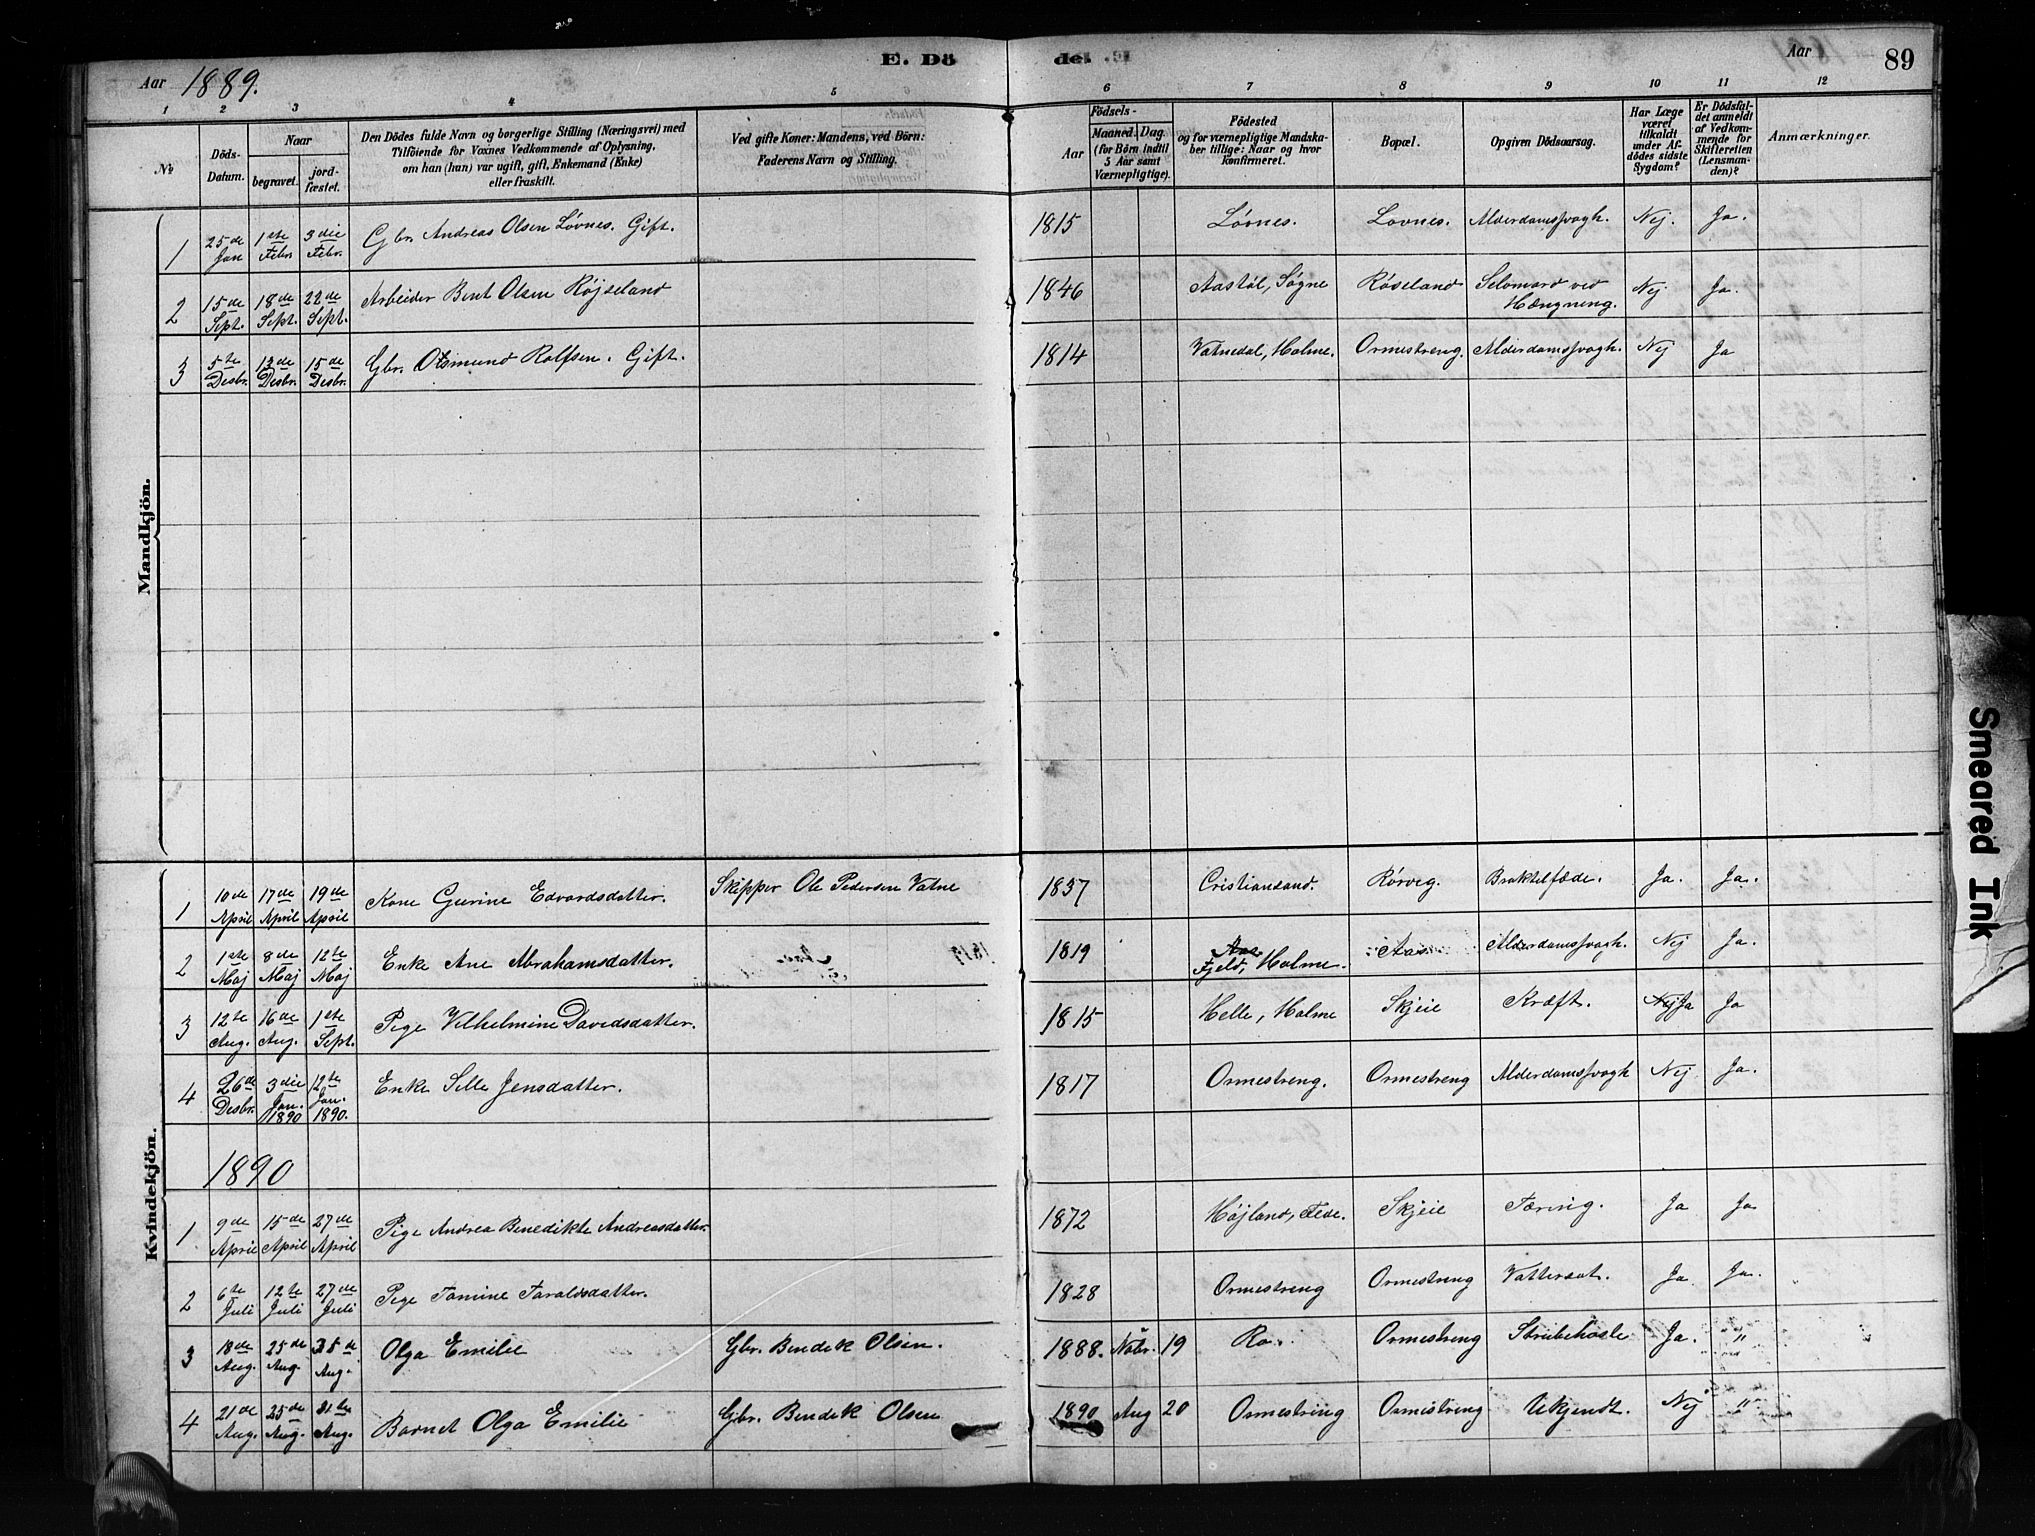 E. Döde. 89
Aar 1889. Aar
1 2 3 4 5 6 7 8 9 10 11 12
№
Döds-Datum.
Naar
begravet. jordfæstet.
Den Dödes fulde Navn og borgerlige Stilling (Næringsvei) med
Tilföiende for Voxnes Vedkommende af Oplysning,
om han (hun) var ugift, gift, Enkemand (Enke)
eller fraskilt.
Ved gifte Koner: Mandens, ved Börn:
Faderens Navn og Stilling.
Födsels-
Aar
Maaned. Dag.
(for Börn indtil
5 Aar samt
Værnepligtige).
Födested
og for værnepligtige Mandskaber tillige: Naar og hvor
konfirmeret.
Bopæl.
Opgiven Dödsaarsag.
Har Læge
været
tilkaldt
under Afdödes sidste
Sygdom?
Er Dödsfaldet anmeldt
af Vedkommende for
Skifteretten
(Lensmanden)?
Anmærkninger.
Mandkjön.
1 25de Jan 1ste Febr. 3die Febr. Gbr. Andreas Olsen Lövnes. Gift. 1815 Lövnes. Lovnes. Alderdomssvagh. Nej. Ja.
2 15de Sept. 18de Sept. 22de Sept. Arbeider Bent Olsen Röjseland 1846 Aastöl, Sögne Röseland Selvmord ved Hængning. Nej Ja.
3 5te Desbr. 13de Desbr. 15de Desbr. Gbr. Osmund Rolfsen. Gift. 1814 Vatnedal, Holme. Ormestreng. Alderdomssvagh. Nej Ja
Kvindekjön.
1 10de April 17de April 19de April Kone Gurine Edvardsdatter. Skipper Ole Pedersen Vatne 1837 Cristiansand. Rörvig. Ja. Ja.
2 1ste Maj 8de Maj 12te Maj Enke Ane Abrahamsdatter. 1819 Aas Fjeld, Holme. Aas Alderdomssvagh. Nej Ja.
3 12te Aug. 16de Aug. 1ste Sept. Pige Vilhelmine Davidsdatter. 1815 Helle, Holme Skjeie Kræft. Nej Ja Ja
4 26de Desbr. 3die Jan. 1890 12te Jan. 1890. Enke Sille Jensdatter. 1817 Ormestreng. Ormestreng Alderdomssvagh Nej Ja.
1890
1 9de April 15de April 27de April Pige Andrea Benedikte Andreasdatter. 1872 Höjland, Fede. Skjeie Tæring. Ja Ja
2 6te Juli 12te Juli 27de Juli Pige Tomine Taraldsdatter. 1828 Ormestreng Ormestreng Vattersot. Ja Ja.
3 18de Aug. 25de Aug. 25de Aug. Olga Emilie Gbr. Bendek Olsen. 1888. Nobr. 19 Ro. Ormestreng Strubehoste Ja. "
4 21de Aug. 25de Aug. 31te Aug. Barnet Olga Emilie Gbr. Bendek Olsen 1890 Aug 20 Ormestreng Ormestreng Ukjendt. Nej "
Smeared Ink